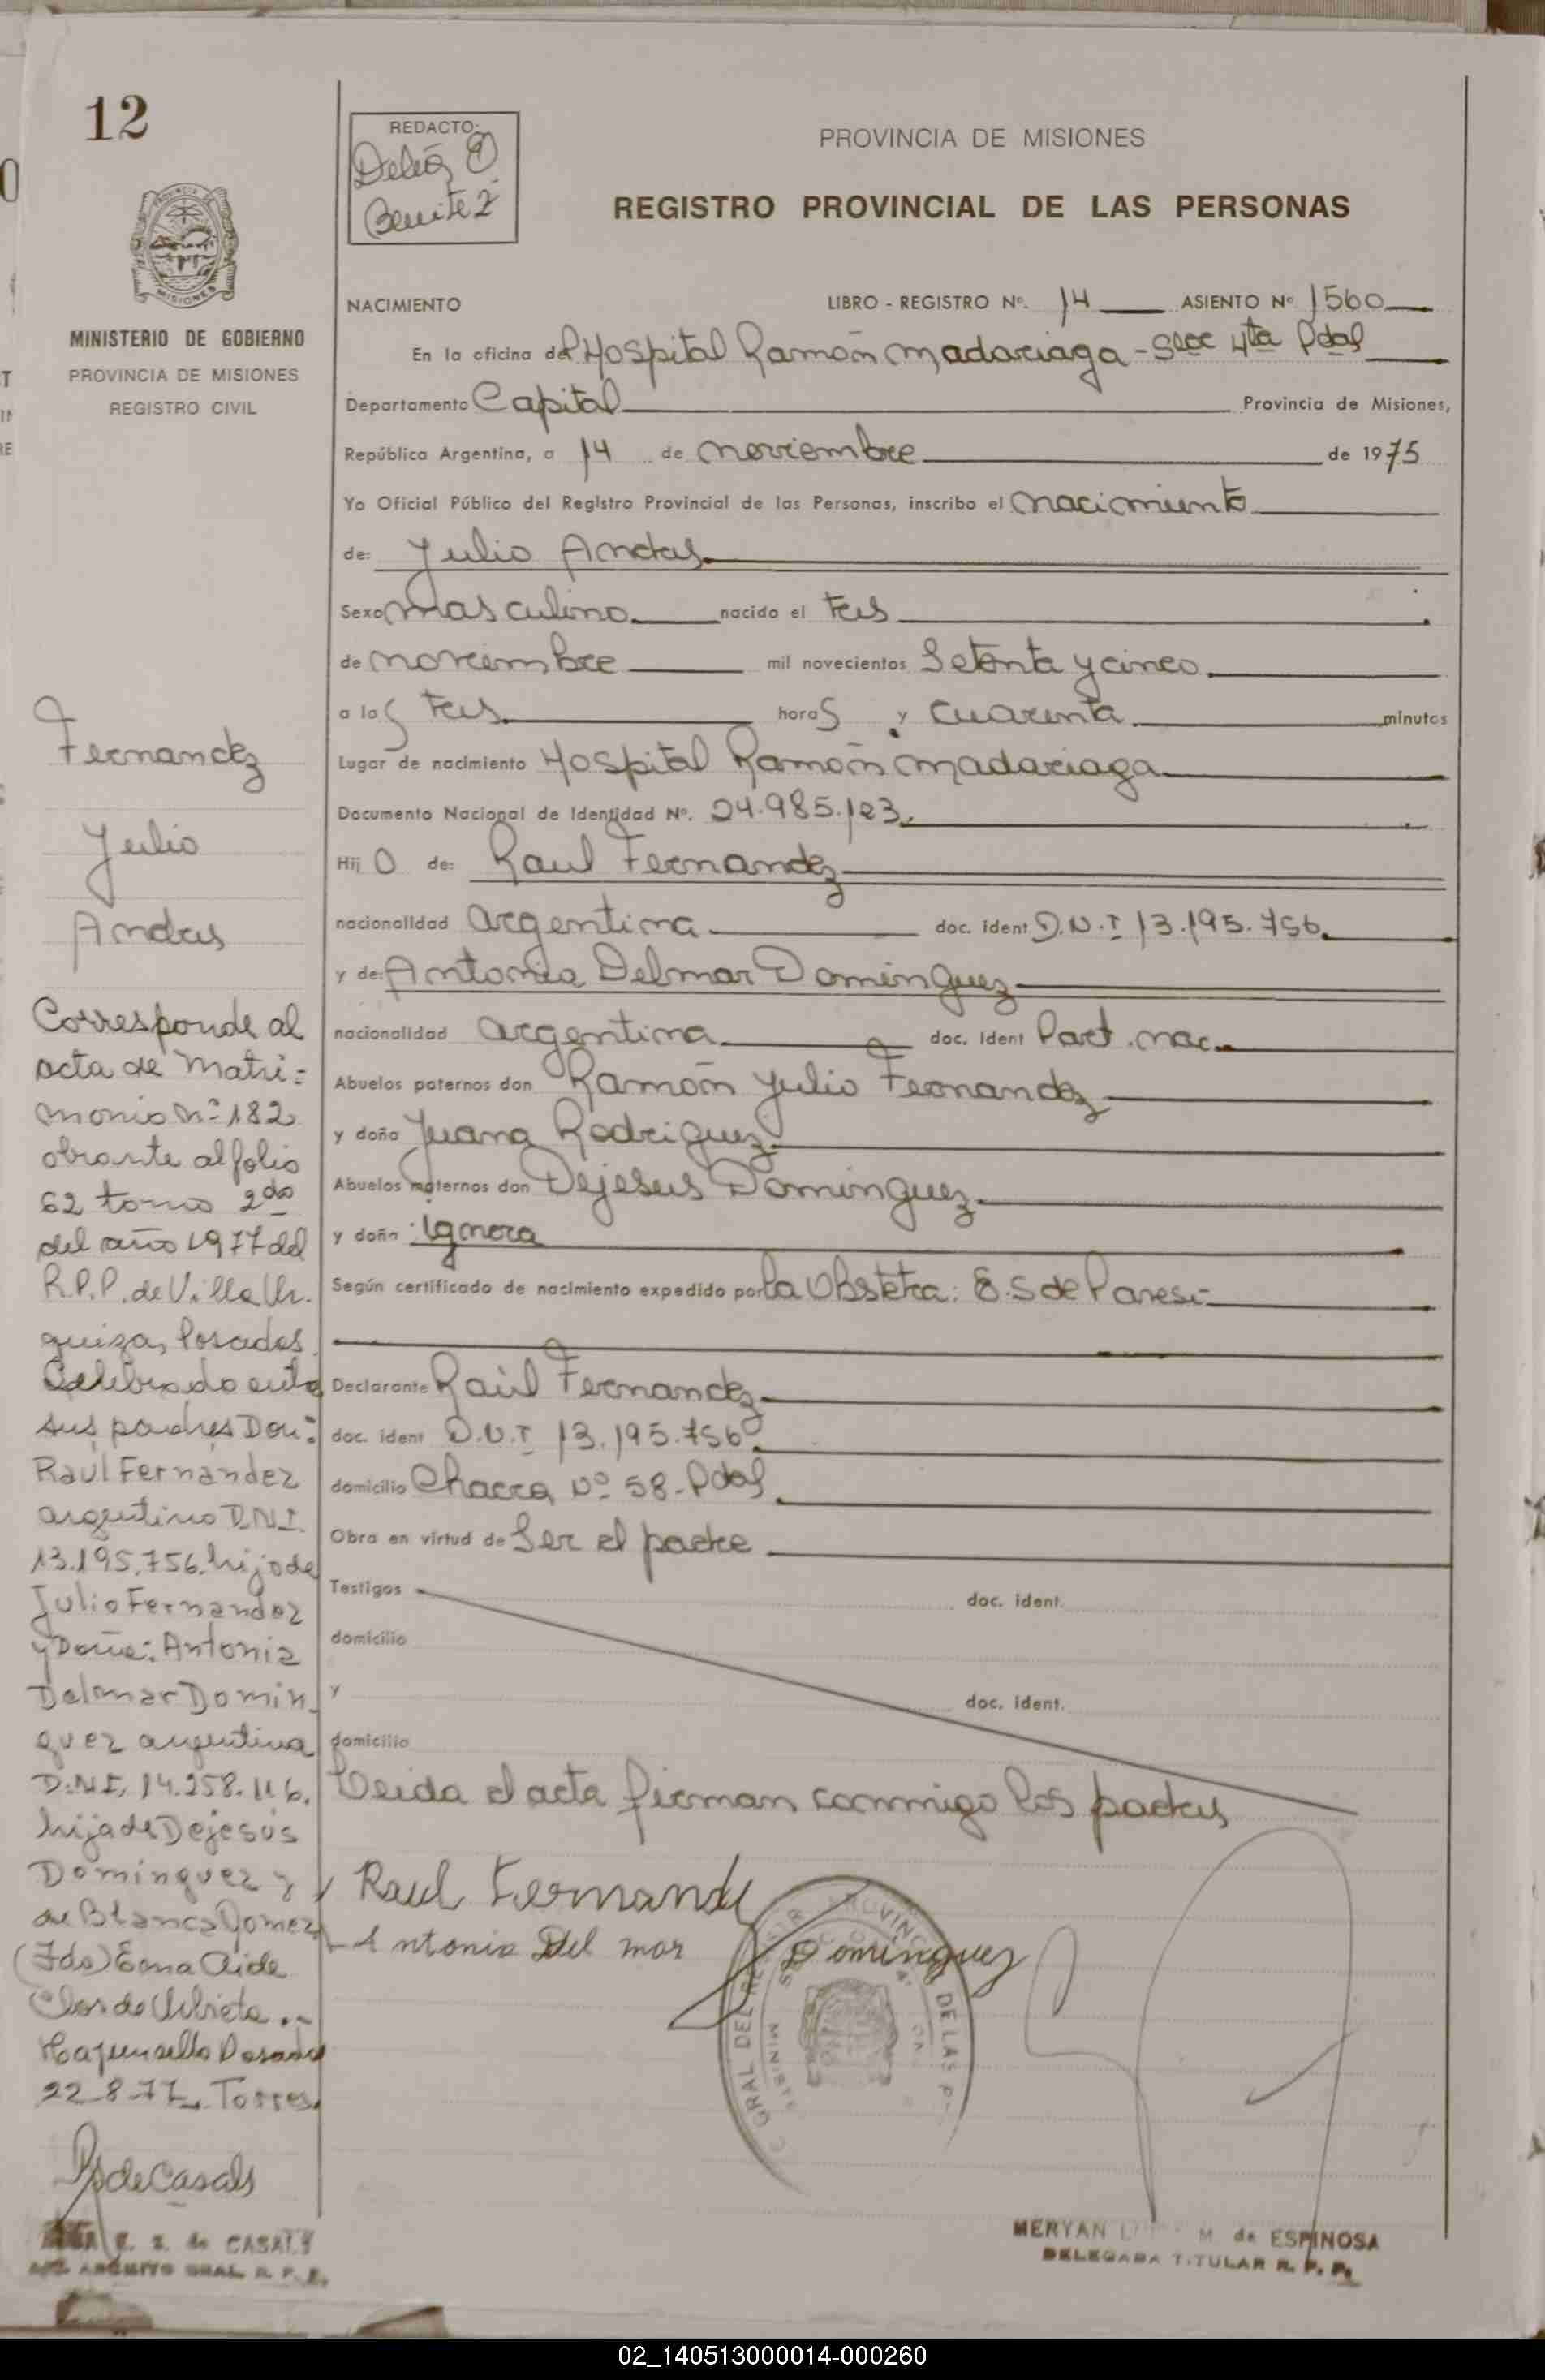 12
REDACTO:
Delia
Benitez
PROVINCIA DE MISIONES
REGISTRO PROVINCIAL DE LAS PERSONAS
MISIONES
MINISTERIO DE GOBIERNO
PROVINCIA DE MISIONES
REGISTRO CIVIL
NACIMIENTO LIBRO - REGISTRO Nº. 14 ASIENTO Nº 1560
En la oficina del Hospital Ramón Madariaga - Secc 4ta Pdas
Departamento Capital Provincia de Misiones,
República Argentina, a 14 de noviembre de 1975
Yo Oficial Público del Registro Provincial de las Personas, inscribo el nacimiento
de: Julio Andres
Sexo masculino nacido el tres
de noviembre mil novecientos Setenta y cinco
a las tres horas y cuarenta minutos
Lugar de nacimiento Hospital Ramón Madariaga
Documento Nacional de Identidad Nº. 24.985.123
Hijo de: Raul Fernandez
nacionalidad argentina doc. ident D.N.I 13.195.756
y de: Antonia Delmar Dominguez
nacionalidad argentina doc. ident Part. nac.
Abuelos paternos don Ramón Julio Fernandez
y doña Juana Rodriguez
Abuelos maternos don Dejesus Dominguez
y doña: ignora
Según certificado de nacimiento expedido por la Obstetra: E.S de Paresi
Declarante Raúl Fernandez
doc. ident D.N.I 13.195.756
domicilio Chacra Nº 58 - Pdas
Obra en virtud de Ser el padre
Testigos doc. ident.
domicilio
y doc. ident.
domicilio
Leida el acta firman conmigo los padres
Raul Fernandez
Antonia Del mar Dominguez
MERYAN M. de ESPINOSA
DELEGADA TITULAR R. P. P.
Fernandez
Julio
Andres
Corresponde al
acta de Matri=
monio nº 182
obrante al folio
62 tomo 2do
del año 1977 del
R.P.P. de Villa Ur.
quiza, Posadas
Celebrado entre
sus padres Don:
Raúl Fernández
argentino D.N.I.
13.195.756. hijo de
Julio Fernandez
y Doña: Antonia
Delmar Domin_
guez argentina
D.N.I. 14.258.116.
hija de Dejesús
Dominguez y
de Blanca Gomez
(Fdo) Erna Aide
Clos de Urbieta.-
Hay un sello Posadas
22-8-77. Torres.
S de Casals
E. S. de CASALS
ARCHIVO GRAL R. P. P.
02_140513000014-000260